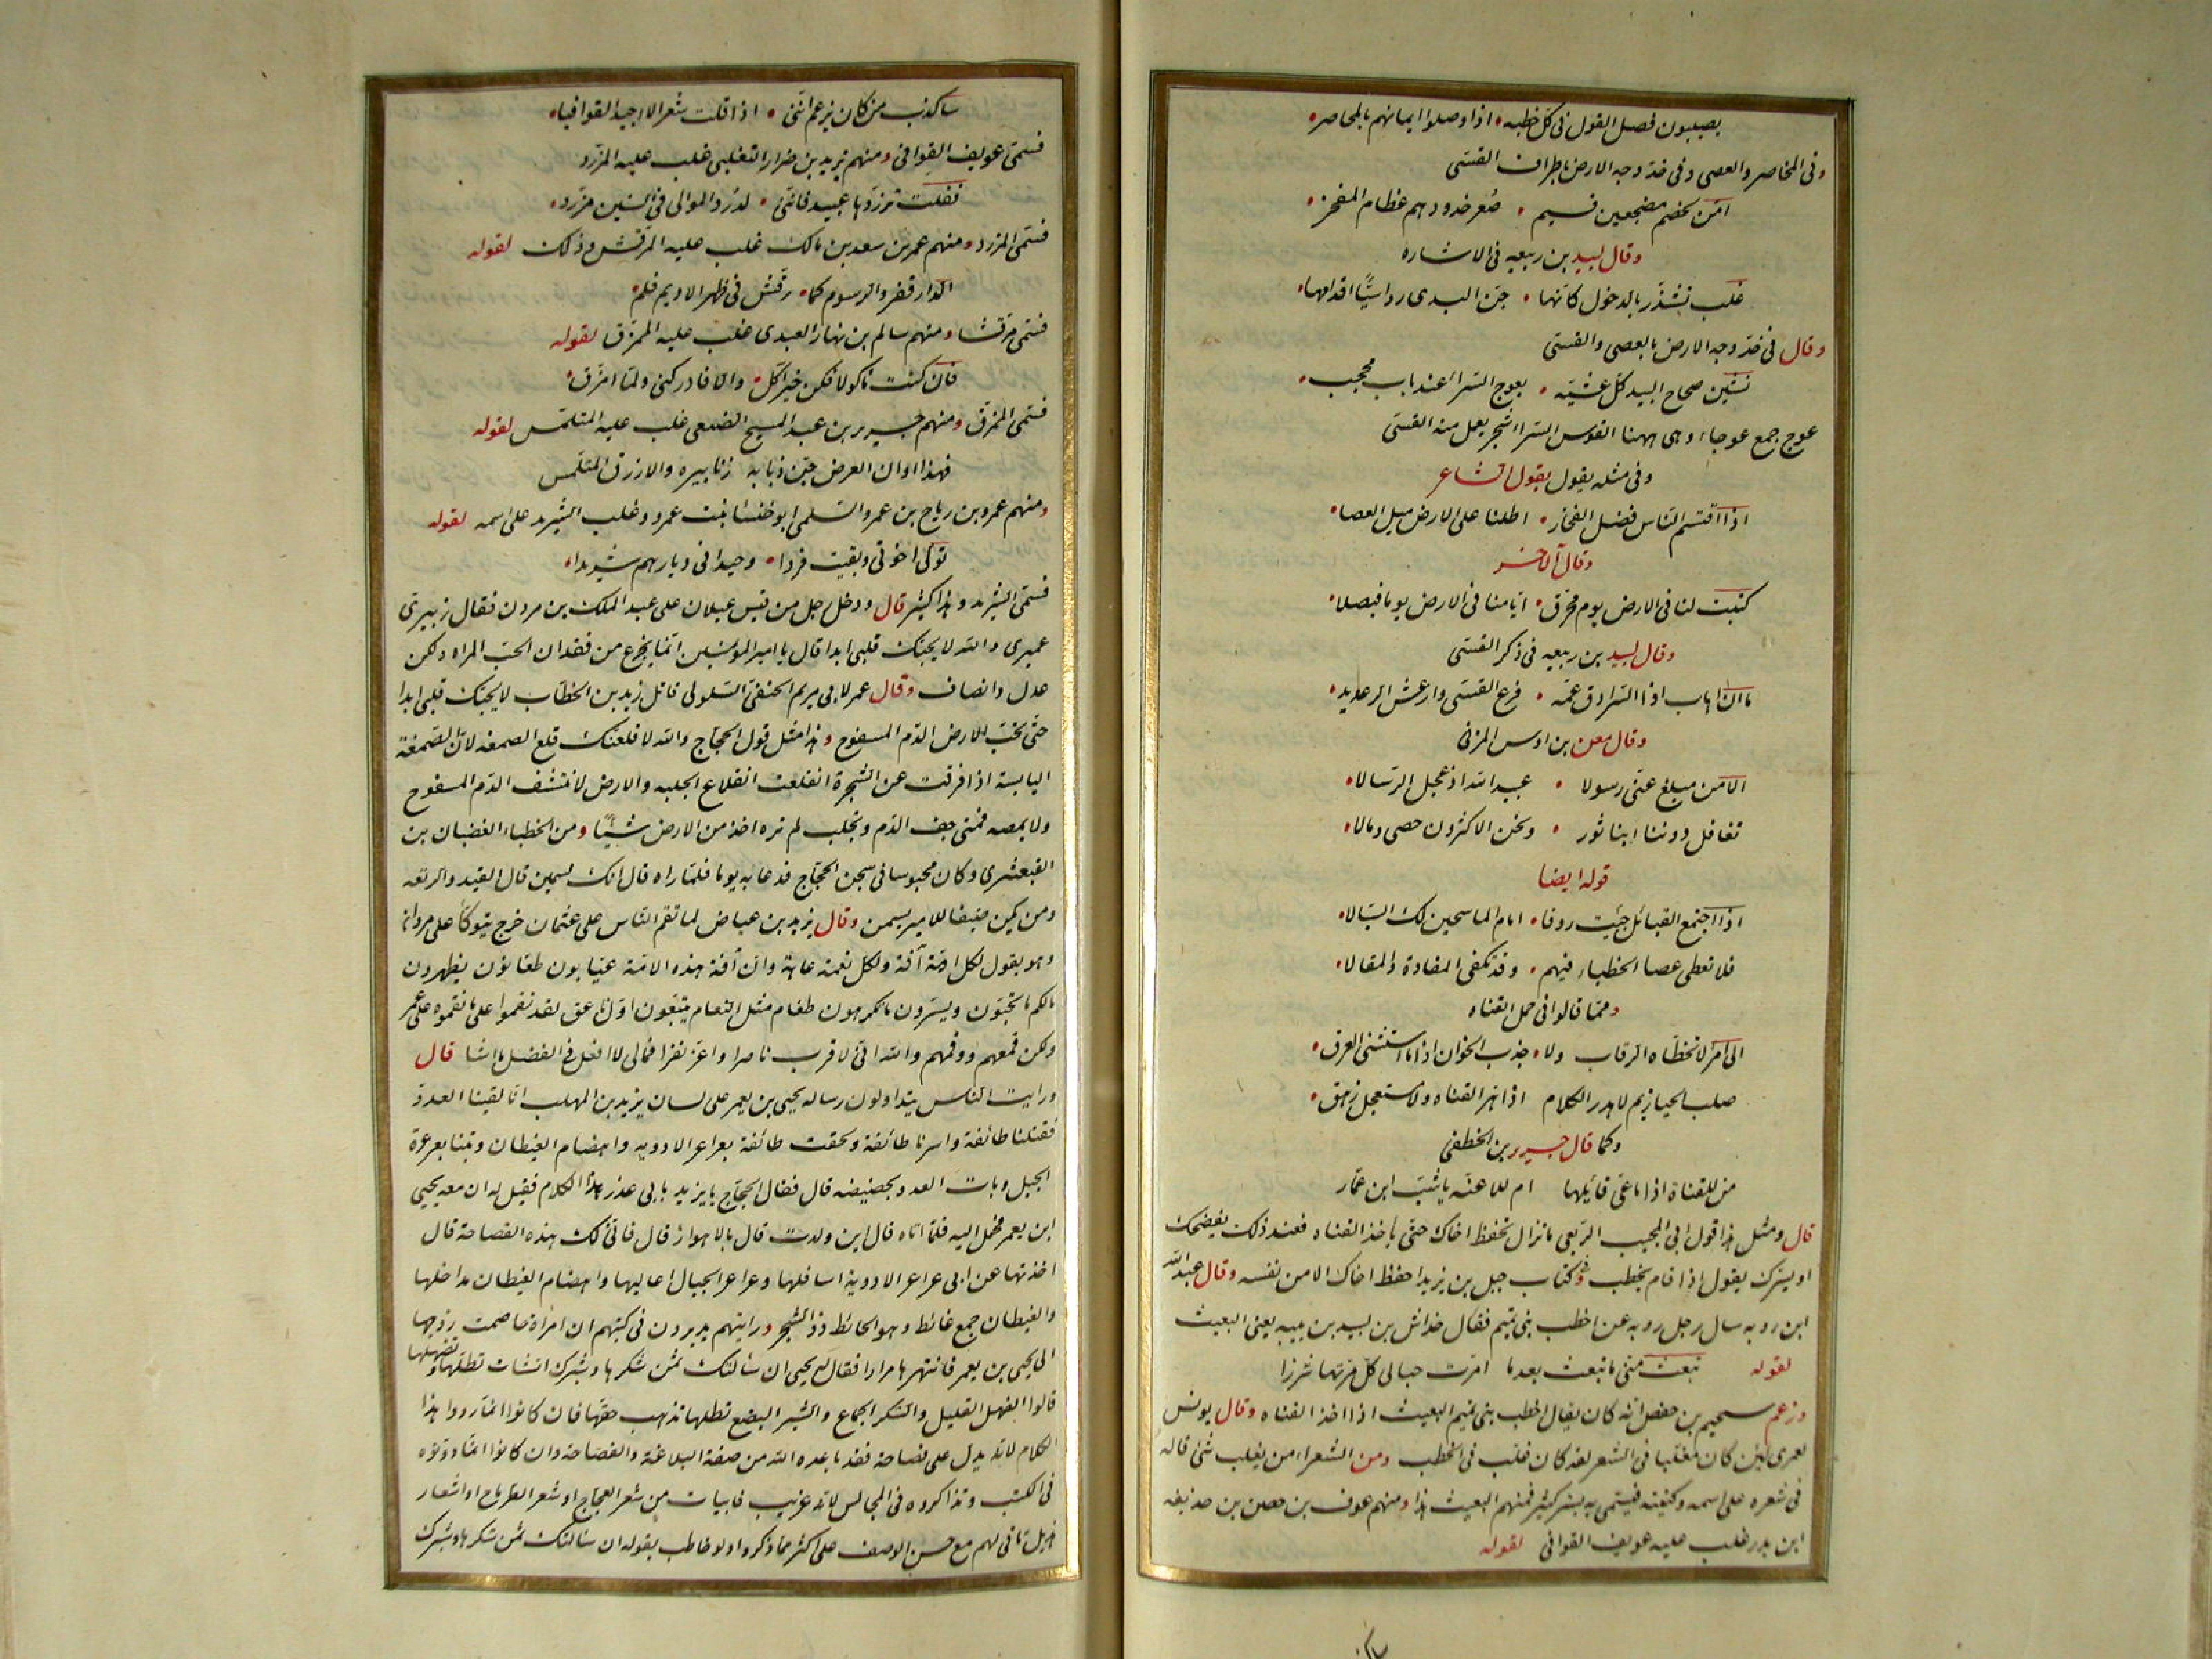 يصيبون فصل القول فى كل خطبه اذا وصلوا ايمانهم بالمخاصر
وفى المخاصر والعصى وفى خد وجه الارض باطراف القسى
امن لخصم مضجعين قسيهم صعر خدودهم عظام المفخر
وقال لبيد بن ربيعه فى الاشاره
غلب تشذر بالدخول كانها جن البدى رواسيا اقدامها
وقال فى خد وجه الارض بالعصى والقسى
نشين صحاح البيد كل عشيه بعوج السراء عند باب محجب
عوج جمع عوجاء وهى ههنا القوس السراء شجر يعمل منه القسى
وفى مثله يقول يقول الشاعر
اذا اقتسم الناس فضل الفخار اطلنا على الارض ميل العصا
وقال الاخر
كتبت لنا فى الارض يوم محرق ايامنا فى الارض يوما فيصلا
وقال لبيد بن ربيعه فى ذكر القسى
ما ان اهاب اذا السرادق عمه قرع القسى وارعش الرعديد
وقال معن بن اوس المزنى
الا من مبلغ عنى رسولا عبيد الله اذ عجل الرسالا
تغافل دوننا ابنا ثور ونحن الاكثرون حصى ومالا
قوله ايضا
اذا اجتمع القبائل جئت ردفا امام الماسحين لك السبالا
فلا تعطى عصا الخطباء فيهم وقد تكفى المقادة والمقالا
ومما قالوا فى حمل القناه
الى امرء لا تخطاه الرقاب ولا جذب الخوان اذا ما استنشى المرق
صلب الحيازيم لا هدر الكلام اذا هز القناه ولا مستعجل زهق
وكما قال جرير بن الخطفى
من للقناة اذا ما عى قايلها ام للاعنه يا شبب ابن عمار
قال ومثل هذا قول ابى المجيب الربعى ما تزال تحفظ اخاك حتى ياخذ القناه فعند ذلك يفضحك
او يسرك يقول اذا قام يخطب وفى كتاب جبل بن يزيد احفظ اخاك الا من نفسه وقال عبدالله
ابن روبه سال رجل روبه عن اخطب بنى تميم فقال خداش بن لبيد بن بيبه يعنى البعيث
لقوله تبعث منى ما تبعث بعد ما امرت حبالى كل مرتها شزرا
وزعم سحيم بن حفص انه كان يقال اخطب بنى تميم البعيث اذا اخذ القناه وقال يونس
لعمرى لئن كان مغلبا فى الشعر لقد كان غلب فى الخطب ومن الشعراء من يغلب شئ قاله
فى شعره على اسمه وكنيته فيسمى به بشر كثير فمنهم البعيث هذا ومنهم عوف بن حصن بن حذيفه
ابن بدر غلب عليه عويف القوافى لقوله
ساكذب من كان يزعم اننى اذا قلت شعرا لا اجيد القوافيا
فسمى عويف القوافى ومنهم يزيد بن ضرار التغلبى غلب عليه المزرد
فقلت تزردها عبيد فاننى لدرد الموالى فى السنين مزرد
فسمى المزرد ومنهم عمر بن سعد بن مالك غلب عليه المرقش وذلك لقوله
الدار قفر والرسوم كما رقش فى ظهر الاديم قلم
فسمى مرقشا ومنهم سالم بن نهار العبدى غلب عليه الممزق لقوله
فان كنت ماكولا فكن خير اكل والا فادركنى ولما امزق
فسمى الممزق ومنهم جرير بن عبد المسيح الضبعى غلب عليه المتلمس لقوله
فهذا اوان العرض جن ذبابه زنابيره والازرق المتلمس
ومنهم عمرو بن رياح بن عمرو السلمى ابو خنسا بنت عمرو وغلب الشريد على اسمه لقوله
تولى اخوتى وبقيت فردا وحيدا فى ديارهم شريدا
فسمى الشريد وهذا كثير قال ودخل رجل من قيس عيلان على عبد الملك بن مرون فقال زبيرى
عميرى والله لا يحبك قلبى ابدا قال يا امير المؤمنين انما يجزع من فقدان الحب المراه ولكن
عدل وانصاف وقال عمر لابى مريم الحنفى السلولى قاتل زيد بن الخطاب لا يحبك قلبى ابدا
حتى تحب الارض الدم المسفوح وهذا مثل قول الحجاج والله لاقلعنك قلع الصمغه لان الصمغة
اليابسة اذا فرقت عن الشجرة انقلعت انقلاع الجلبه والارض لا تنشف الدم المسفوح
ولا يمصه فمتى جف الدم وتجلب لم تره اخذ من الارض شيئا ومن الخطباء الغضبان بن
القبعثرى وكان محبوسا فى سجن الحجاج فدعا به يوما فلما راه قال انك لسمين قال القيد والرتعه
ومن يكن ضيفا للامير يسمن وقال يزيد بن عياض لما نقم الناس على عثمان خرج يتوكا على مروان
وهو يقول لكل امة آفة ولكل نعمة عاهة وان آفة هذه الامة عيابون طعانون يظهرون
لكم ما تحبون ويسرون ما تكرهون طغام مثل النعام يتبعون اول ناعق لقد نقموا على ما نقموه على عمر
ولكن قمعهم ووقمهم والله انى لاقرب ناصرا واعز نفرا فمالى لا افعل فى الفضل ما اشا قال
ورايت الناس يتداولون رساله يحيى بن يعمر على لسان يزيد بن المهلب انا لقينا العدو
فقتلنا طائفة واسرنا طائفة ولحقت طائفة بعراعر الاوديه واهضام الغيطان وبتنا بعرعرة
الجبل وبات العدو بحضيضه قال فقال الحجاج ما يزيد بابى عذر هذا الكلام فقيل له ان معه يحيى
ابن يعمر فحمل اليه فلما اتاه قال اين ولدت قال بالاهواز قال فانى لك هذه الفصاحة قال
اخذتها عن ابى عراعر الاودية اسافلها وعراعر الجبال اعاليها واهضام الغيطان مداخلها
والغيطان جمع غائط وهو الحائط ذو الشجر ورايتهم يديرون فى كتبهم ان امراة خاصمت زوجها
الى يحيى بن يعمر فانتهرها مرارا فقال له يحيى ان سالتك ثمن شكرها وشبرك انشات تطلها وتضهلها
قالوا الضهل القليل والشكر الجماع والشبر البضع تطلها تذهب حقها فان كانوا انما رووا هذا
الكلام لانه يدل على فصاحة فقد باعده الله من صفة البلاغة والفصاحة وان كانوا انما دونوه
فى الكتب وتذاكروه فى المجالس لانه غريب فابيات من شعر العجاج او شعر الطرماح او اشعار
هذيل تاتى لهم مع حسن الوصف على اكثر مما ذكروا ولو خاطب بقوله ان سالتك ثمن شكرها وشبرك